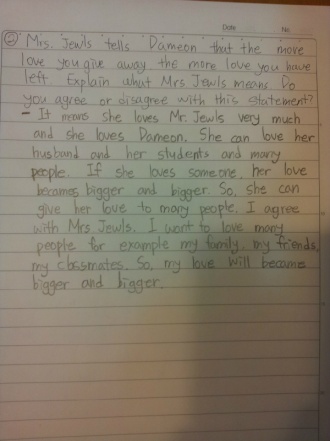 Date No
② Mrs. Jewls tells Dameon that the more
love you give away the more love you have
left. Explain what Mrs Jewls means. Do
you agree or disagree with this statement?
- It means she loves Mr. Jewls very much
and she loves Dameon. She can love her
husband and her students and many
people. If she loves someone, her love
becomes bigger and bigger. So, she can
give her love to many people. I agree
with Mrs Jewls. I want to love many
people for example my family, my friends,
my classmates. So, my love will become
bigger and bigger.